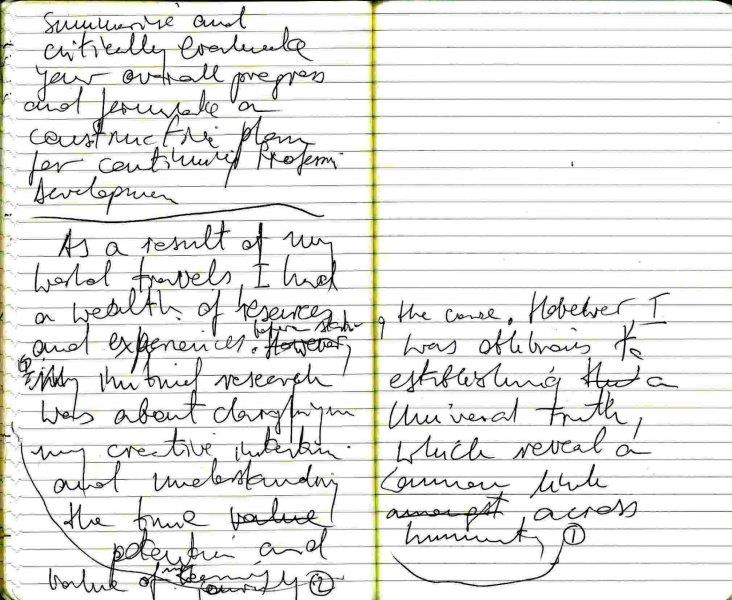 Summarise and
critically evaluate
your overall progress
and formulate a
constructive plan
for continuing Professi
Developmen
As a result of my
world travels, I had
a wealth of resources
and experiences. before However,
my initial research
was about
my creative
and understanding
the true value
potential and
value of my ②
the course. However, I
was oblivious to
establishing that a
Universal truth,
which reveal a
common link
amongst across
humanity ①